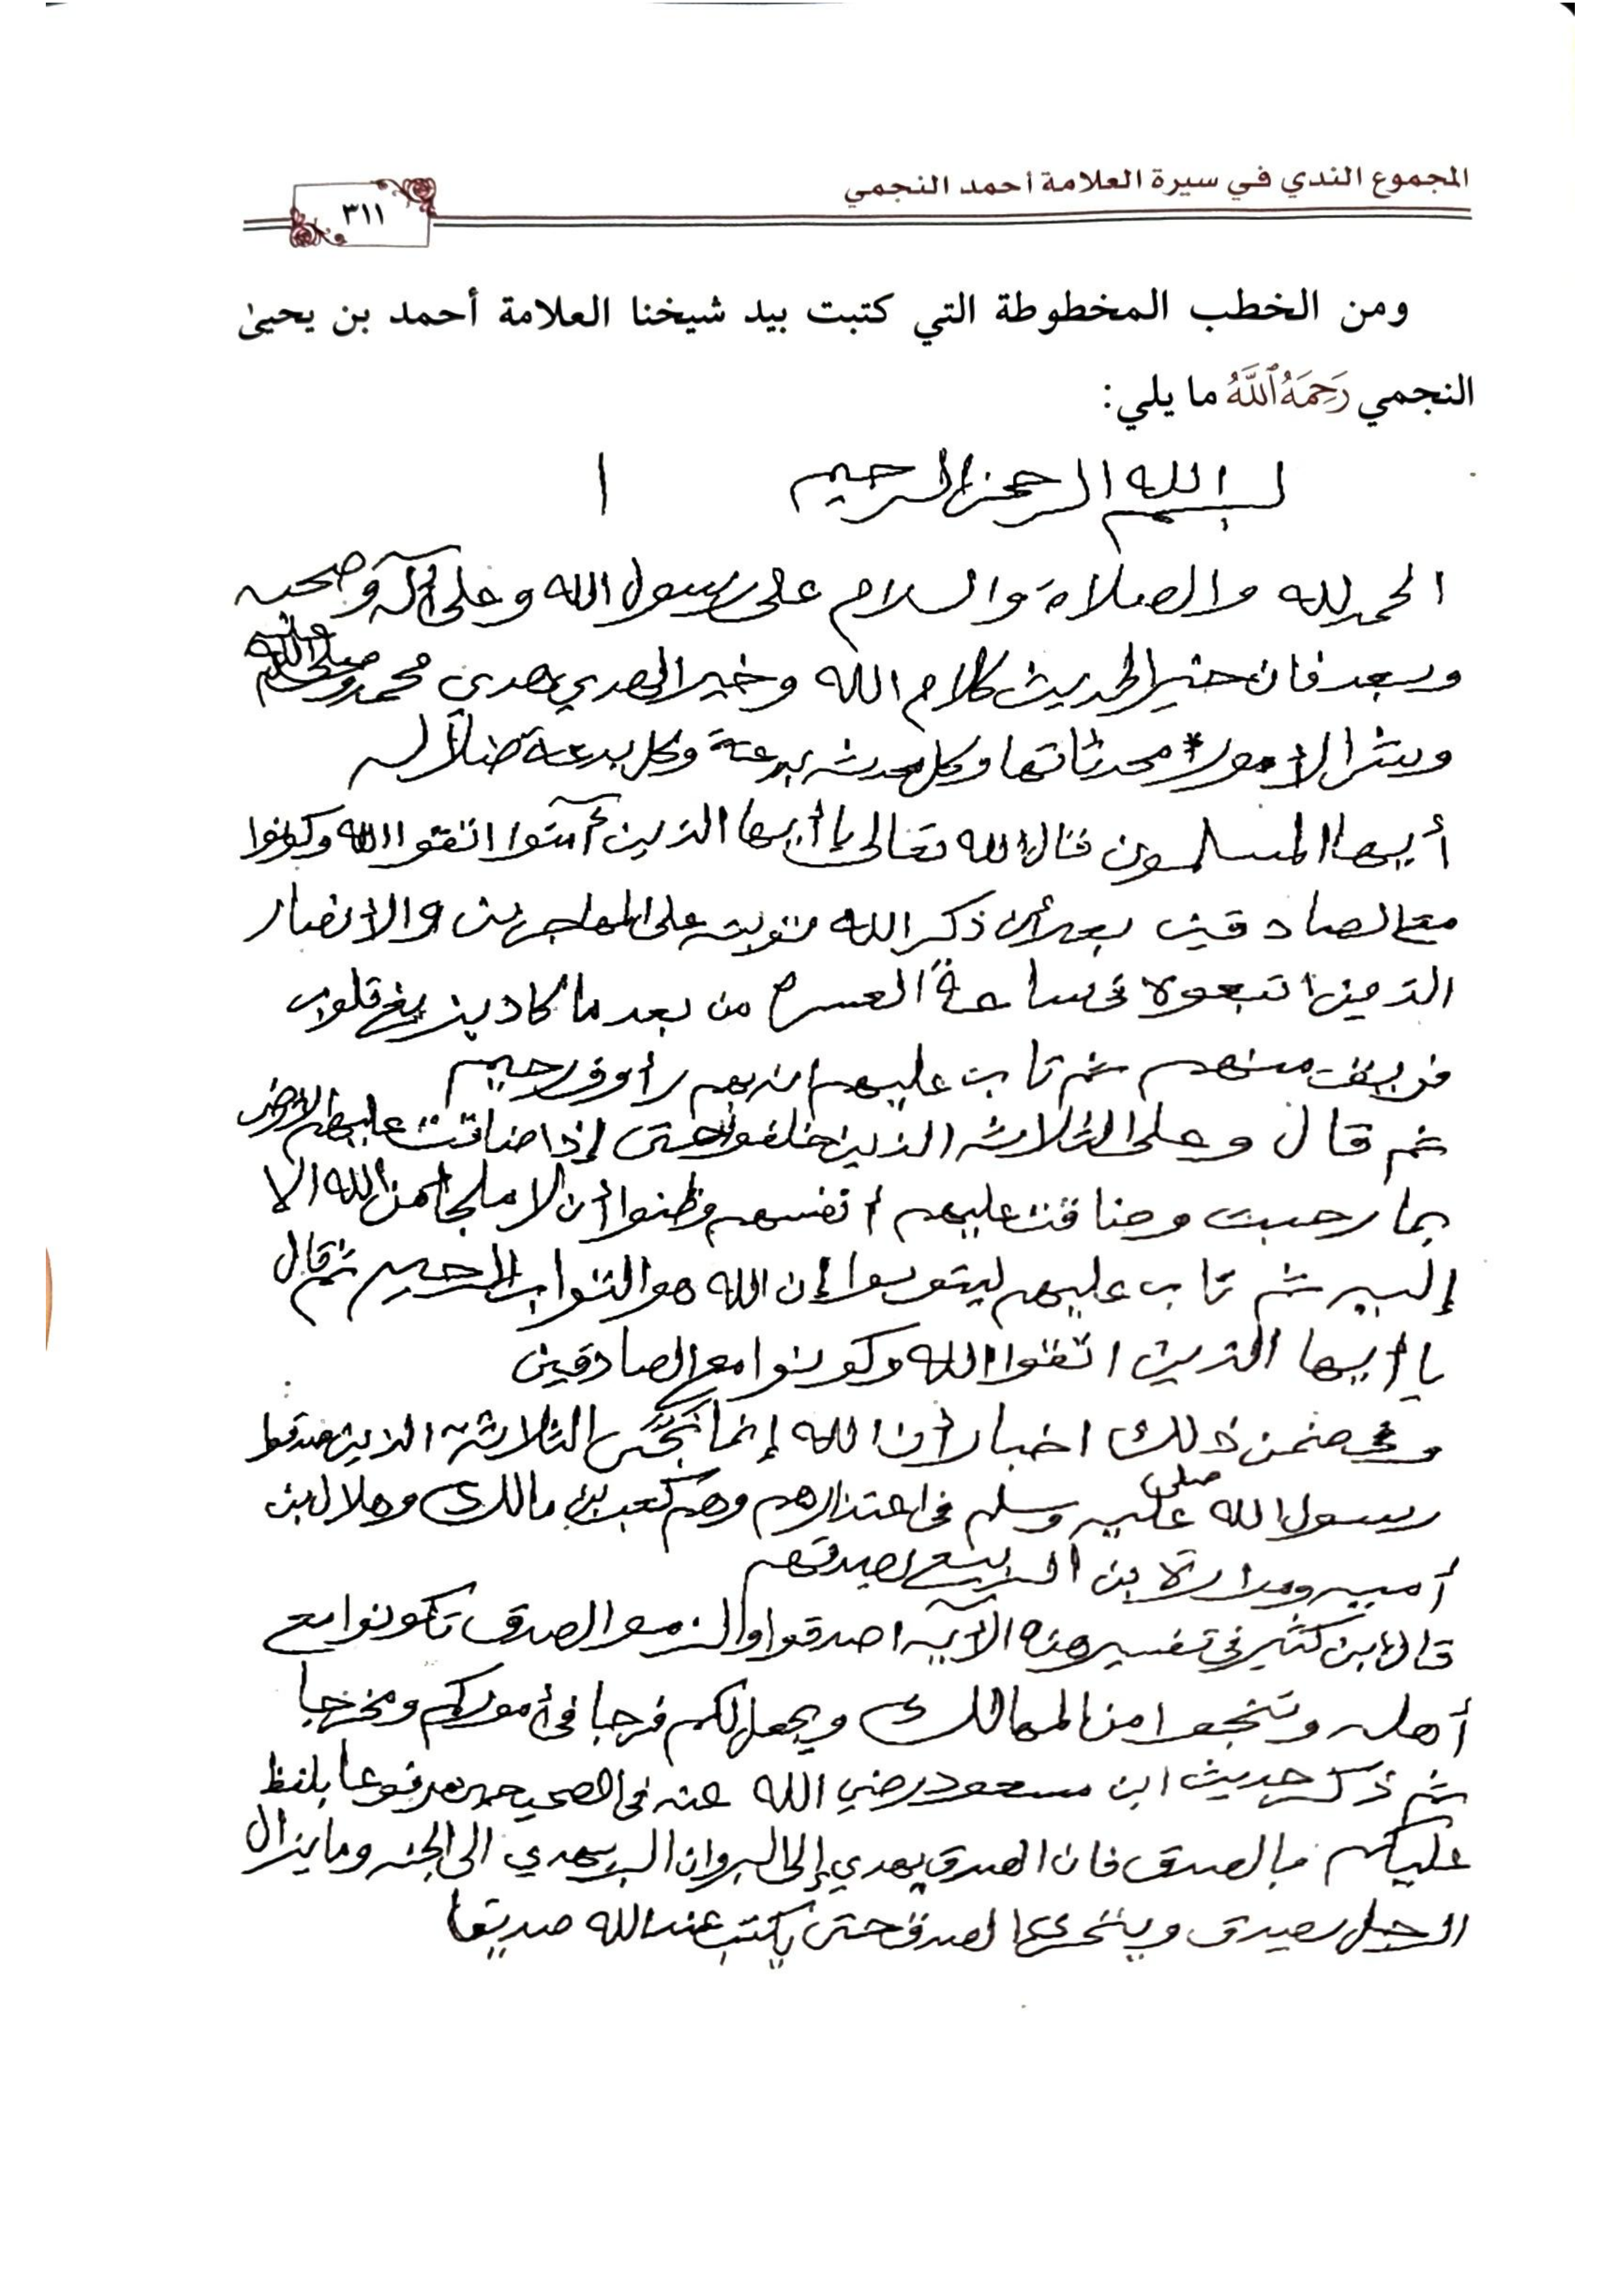 المجموع الندي في سيرة العلامة أحمد النجمي
٣١١
ومن الخطب المخطوطة التي كتبت بيد شيخنا العلامة أحمد بن يحيىٰ
النجمي رَحِمَهُ ٱللَّهُ ما يلي:
بسم الله الرحمن الرحيم ١
الحمد لله والصلاة والسلام على رسول الله وعلى آله وصحبه
وبعد فان خير الحديث كلام الله وخير الهدي هدي محمد صلى الله عليه وسلم
وشر الامور محدثاتها وكل محدثه بدعة وكل بدعة ضلاله
أيها المسلمون قال الله تعالى يا أيها الذين آمنوا اتقوا الله وكونوا
مع الصادقين بعد أن ذكر الله توبته على المهاجرين والانصار
الذين اتبعوه في ساعة العسره من بعد ما كاد يزيغ قلوب
فريق منهم ثم تاب عليهم انه بهم رأوف رحيم
ثم قال وعلى الثلاثه الذين خلفوا حتى إذا ضاقت عليهم الارض
بما رحبت وضاقت عليهم أنفسهم وظنوا أن لا ملجأ من الله الا
إليه ثم تاب عليهم ليتوبوا إن الله هو التواب الرحيم ثم قال
يا أيها الذين اتقوا الله وكونوا مع الصادقين
وفي ضمن ذلك اخبار أن الله إنما نجّى الثلاثة الذين صدقوا
رسول الله صلى عليه وسلم في اعتذارهم وهم كعب بن مالك وهلال بن
أميه ومرارة ابن الربيع بصدقهم
قال ابن كثير في تفسير هذه الآيه اصدقوا والزموا الصدق تكونوا مع
أهله وتنجوا من المهالك ويجعل لكم فرجا في أموركم ومخرجا
ثم ذكر حديث ابن مسعود رضي الله عنه في الصحيحين مرفوعا بلفظ
عليكم بالصدق فان الصدق يهدي إلى البر وان البر يهدي الى الجنه وما يزال
الرجل يصدق ويتحرى الصدق حتى يكتب عند الله صديقا